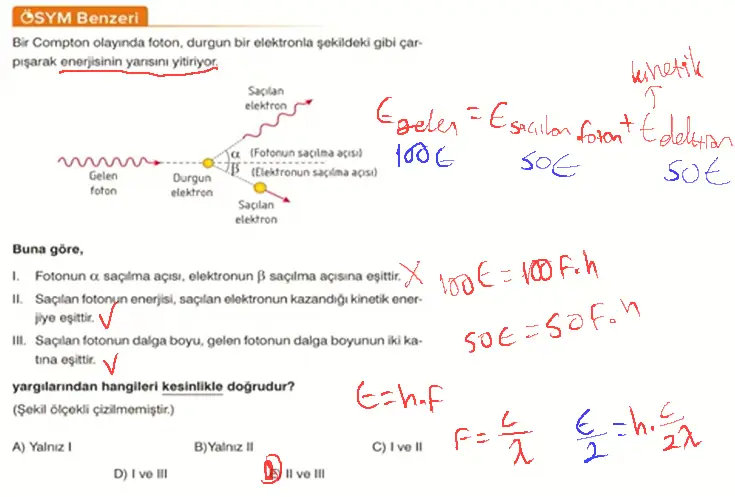 ÖSYM Benzeri
Bir Compton olayında foton, durgun bir elektronla şekildeki gibi çar-
pışarak enerjisinin yarısını yitiriyor.
Saçılan
elektron
α (Fotonun saçılma açısı)
β (Elektronunun saçılma açısı)
Gelen
foton
Durgun
elektron
Saçılan
elektron
kinetik
Egelen = Esaçılan foton + Eelektron
100E 50E 50E
Buna göre,
I. Fotonun α saçılma açısı, elektronun β saçılma açısına eşittir. X
100E = 100F.h
II. Saçılan fotonun enerjisi, saçılan elektronun kazandığı kinetik ener-
jiye eşittir. ✓
50E = 50F.h
III. Saçılan fotonun dalga boyu, gelen fotonun dalga boyunun iki ka-
tına eşittir. ✓
yargılarından hangileri kesinlikle doğrudur?
(Şekil ölçekli çizilmemiştir.)
E = h.F
F = c/λ E/2 = h.c/2λ
A) Yalnız I B)Yalnız II C) I ve II
D) I ve III E) II ve III